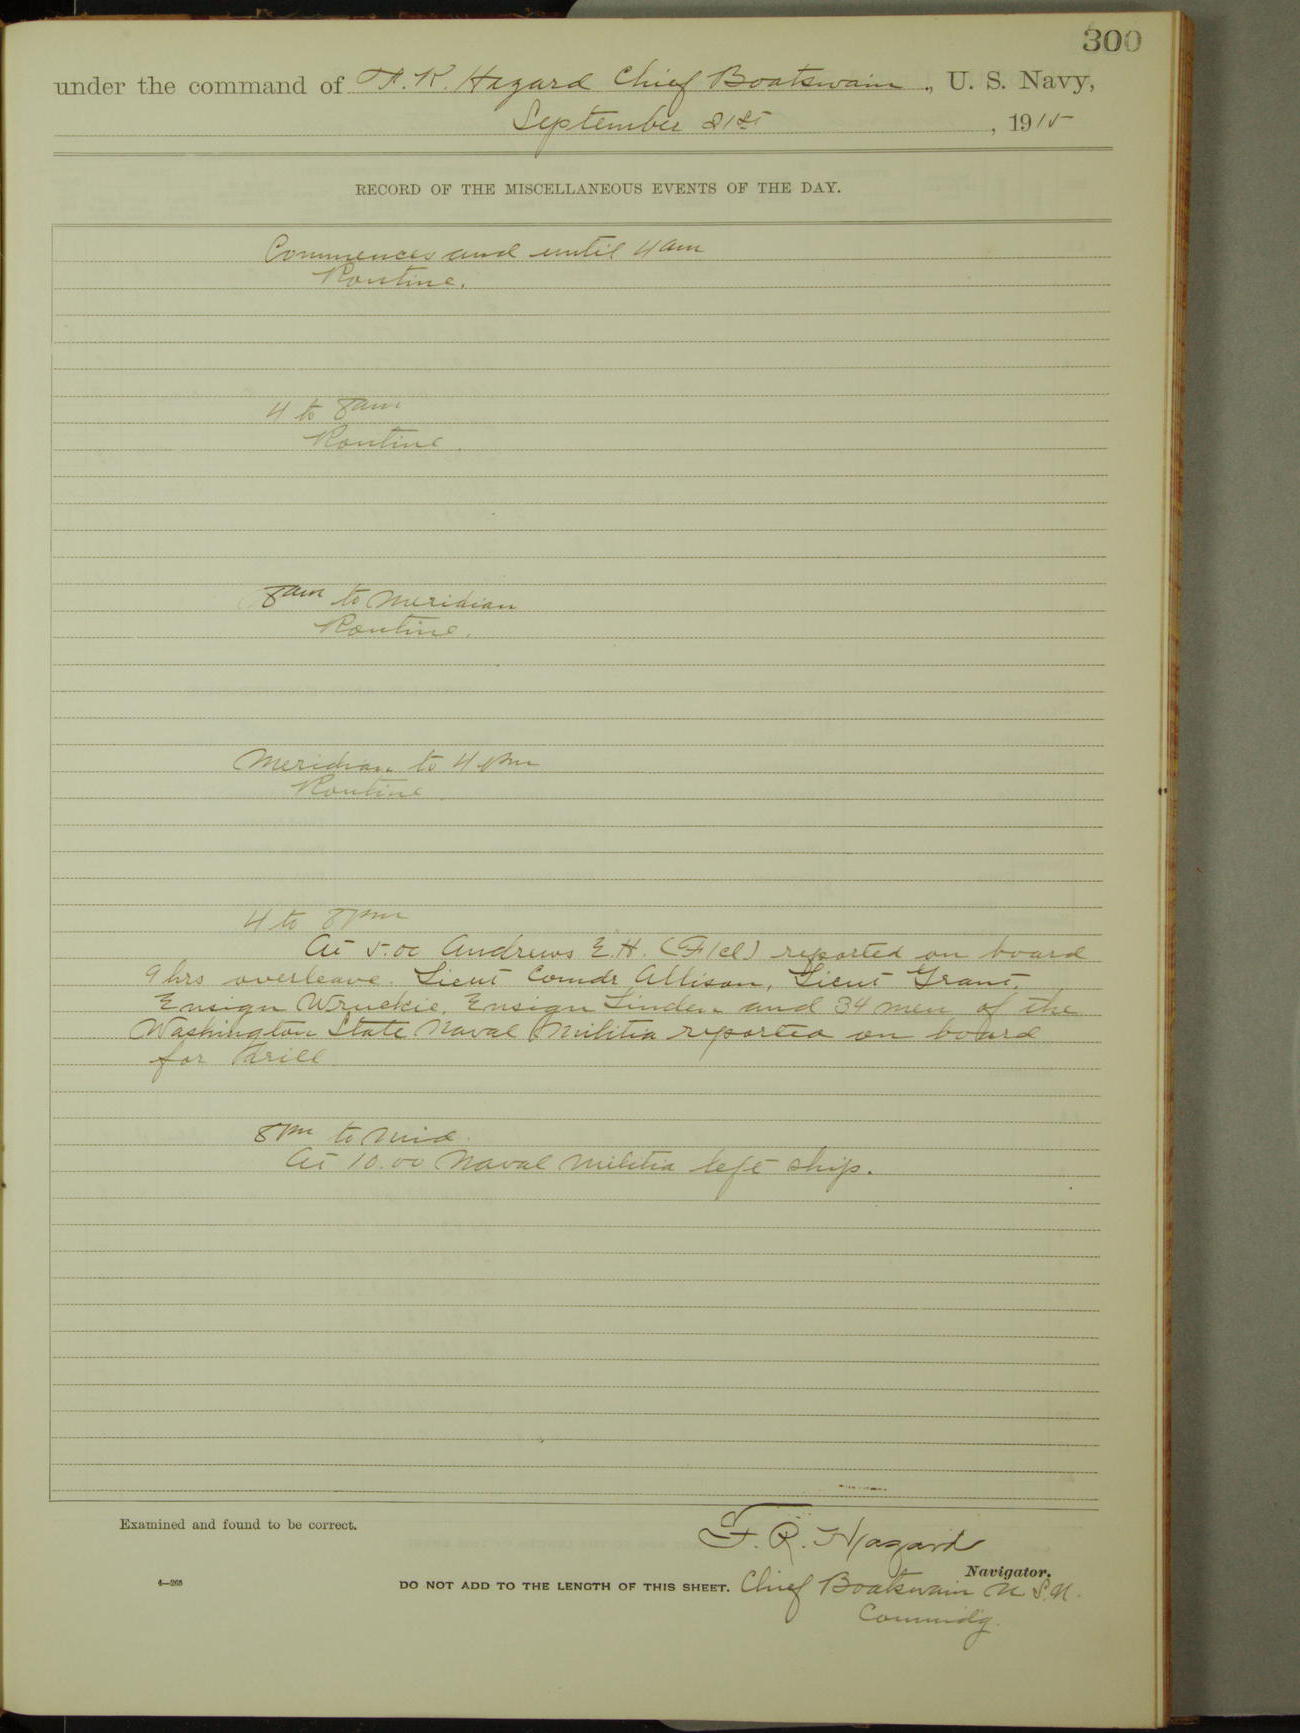 300
under the command of F. R. Hazard Chief Boatswain, U. S. Navy,
September 21st, 1915
RECORD OF THE MISCELLANEOUS EVENTS OF THE DAY.
Commences and until 4 am
Routine.
4 to 8 am
Routine.
8 am to Meridian
Routine.
Meridian to 4 pm
Routine.
4 to 8 pm
At 5.00 Andrews E.H. (F1cl) reported on board
9 hrs overleave. Lieut Comdr Allison, Lieut Grant,
Ensign Wruckie, Ensign Linden and 34 men of the
Washington State Naval Militia reported on board
for Drill
8 pm to Mid.
At 10.00 Naval Militia left ship.
Examined and found to be correct.
F. R. Hazard
Navigator.
4—265
DO NOT ADD TO THE LENGTH OF THIS SHEET. Chief Boatswain U.S.N.
Commd'g.